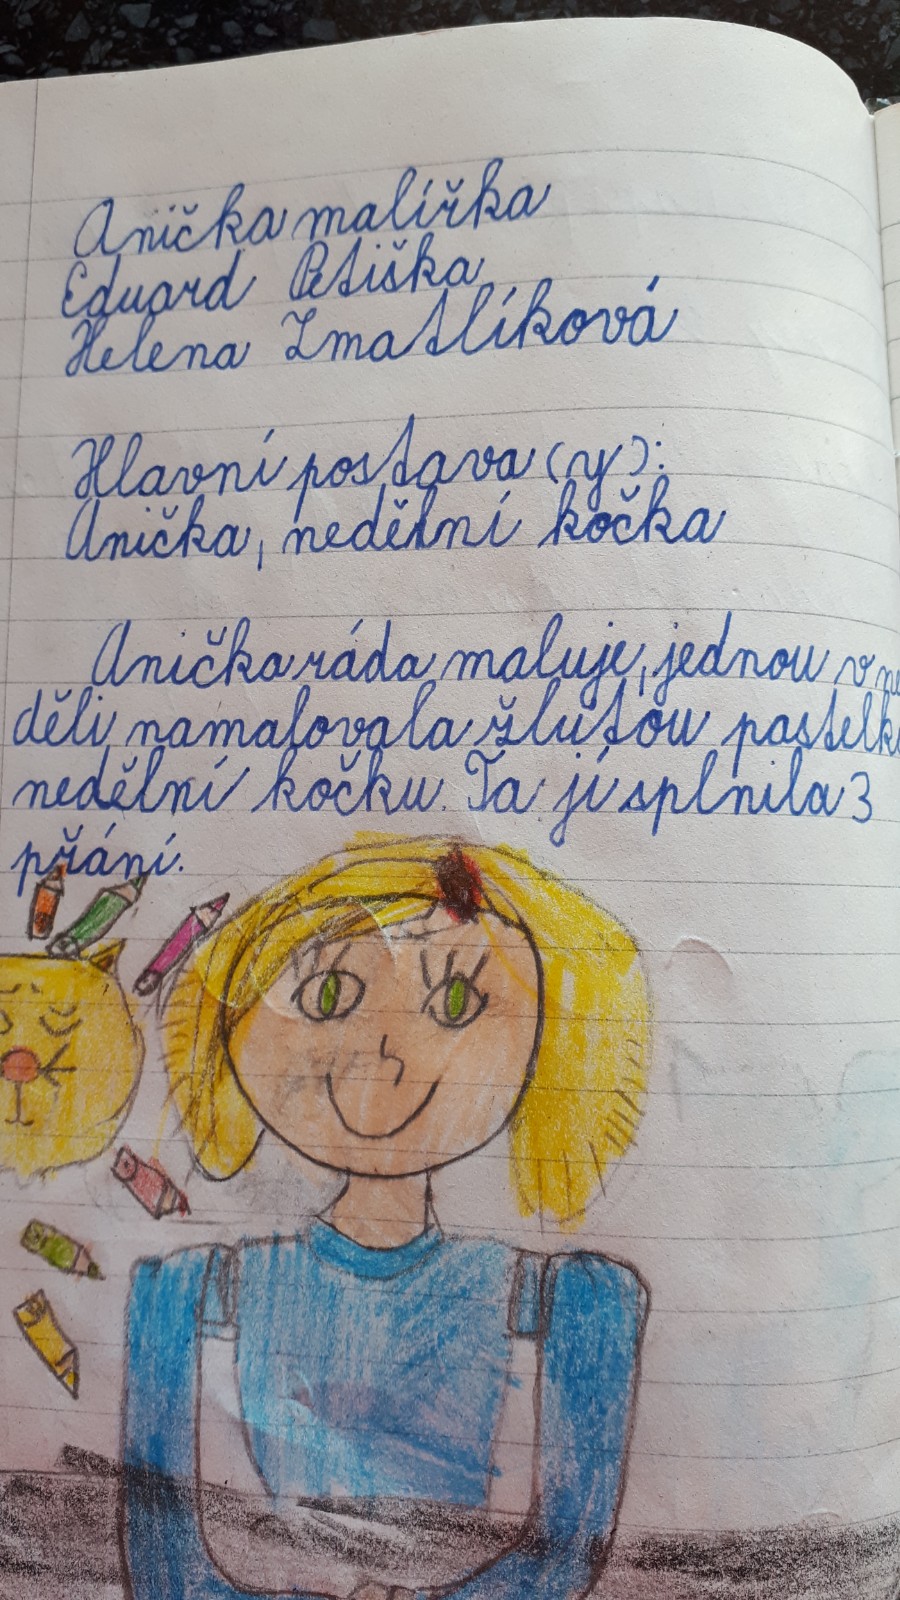 Anička malířka
Eduard Petiška
Helena Zmatlíková
Hlavní postava (y):
Anička, nedělní kočka
Anička ráda maluje, jednou v ne
děli namalovala žlutou pastelk
nedělní kočku. Ta jí splnila 3
přání.